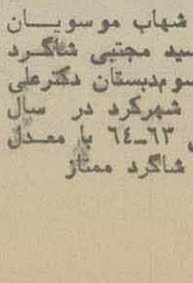 شهاب موسویان
سید مجتبی شاگرد
سوم دبستان دکترعلی
شهرکرد در سال
۶۳ـ٦٤ با معدل
شاگرد ممتاز